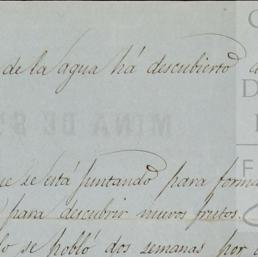 de la agua há descubierto
se está juntando para forma
para descubrir nuevos frutos.
se pobló dos semanas por